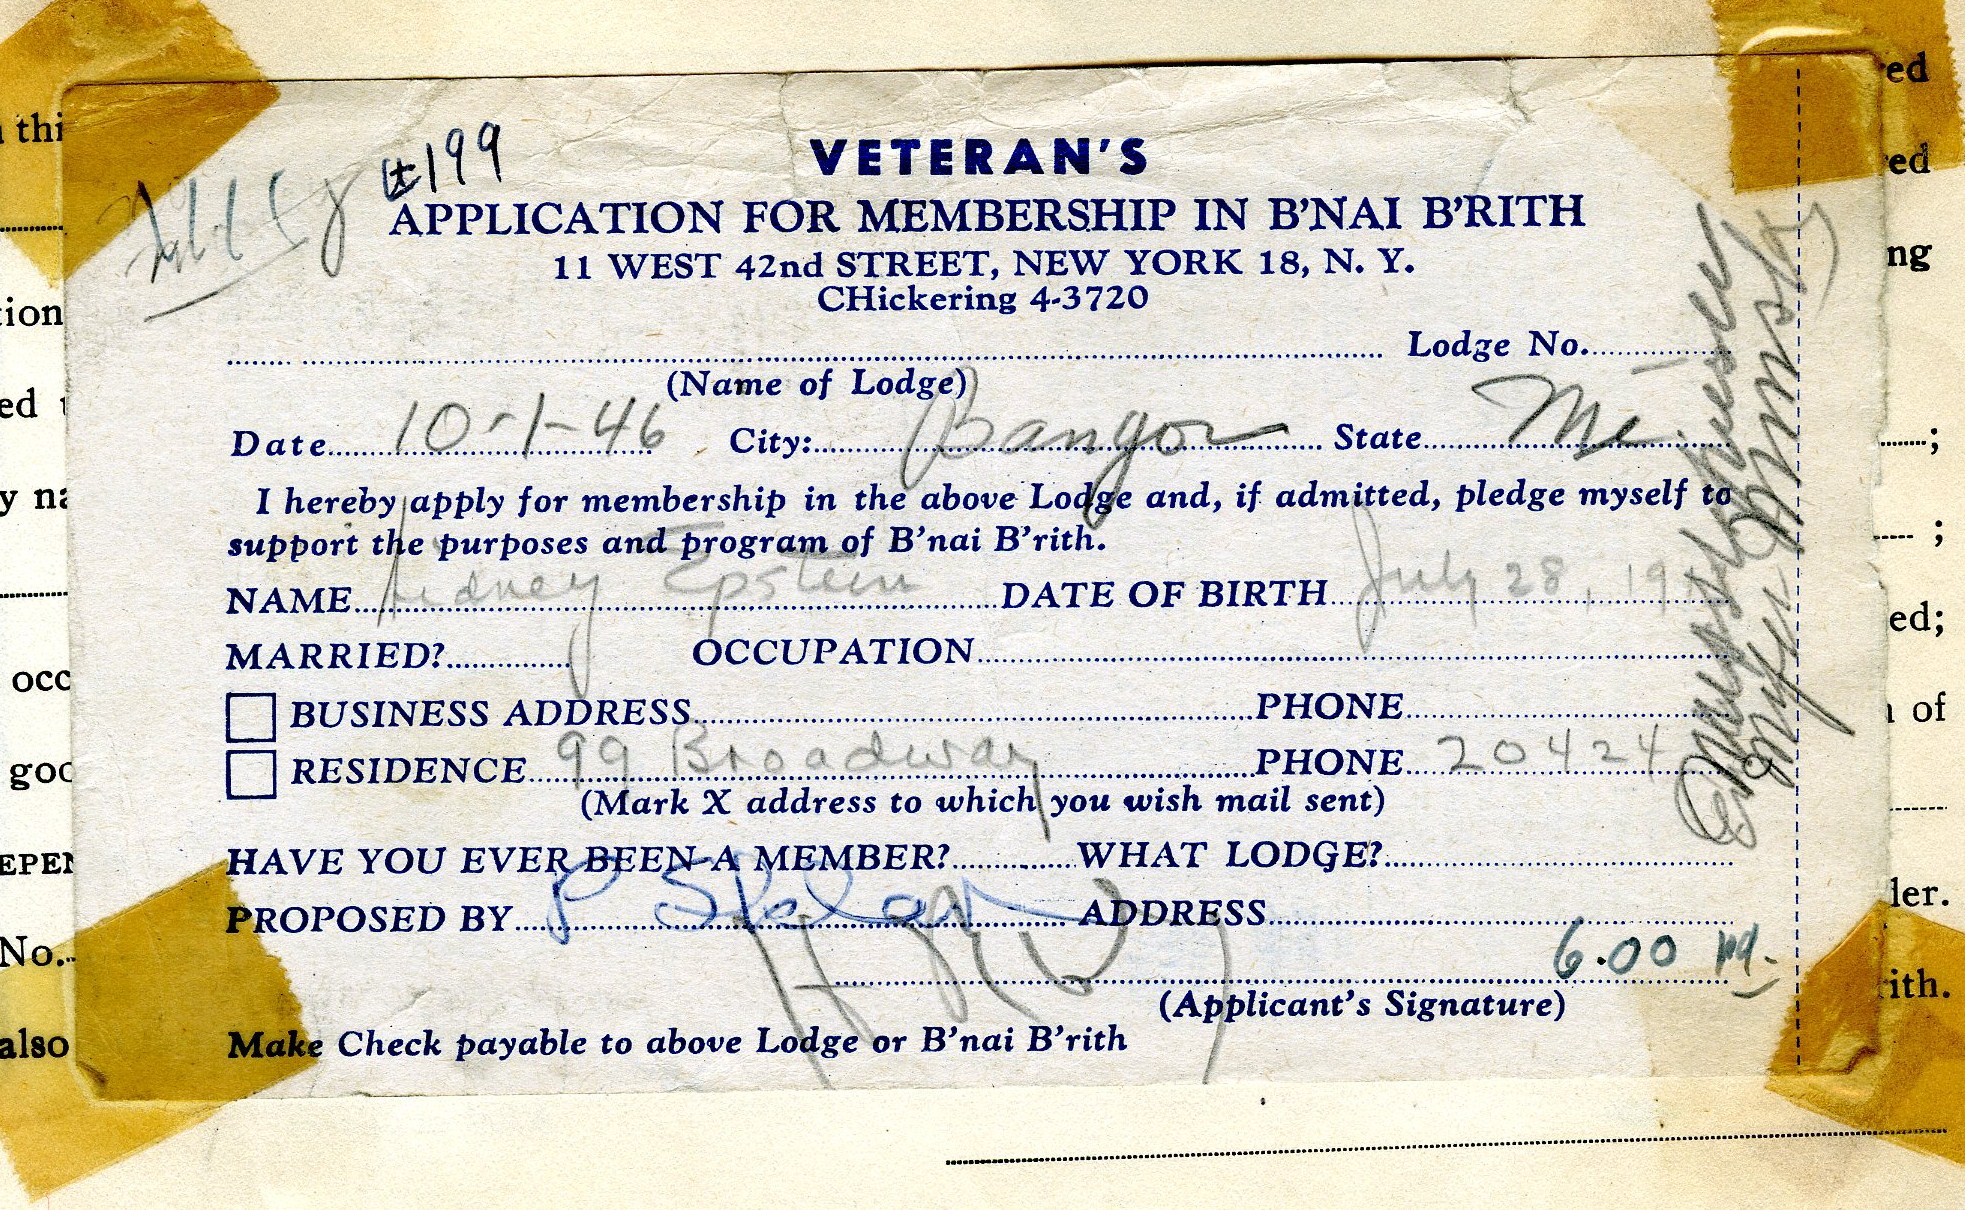 #199
VETERAN'S
APPLICATION FOR MEMBERSHIP IN B'NAI B'RITH
11 WEST 42nd STREET, NEW YORK 18, N. Y.
CHickering 4-3720
Lodge No.
(Name of Lodge)
Date 10-1-46 City: Bangor State Me.
I hereby apply for membership in the above Lodge and, if admitted, pledge myself to
support the purposes and program of B'nai B'rith.
NAME Sidney Epstein DATE OF BIRTH July 28, 19
MARRIED? OCCUPATION
BUSINESS ADDRESS PHONE
RESIDENCE 99 Broadway PHONE 20424
(Mark X address to which you wish mail sent)
HAVE YOU EVER BEEN A MEMBER? WHAT LODGE?
PROPOSED BY P Sklar ADDRESS
6.00
(Applicant's Signature)
Make Check payable to above Lodge or B'nai B'rith
thi
tion
ed
y na
occ
goo
EPEN
No.
also
ed
ed
ng
;
;
ed;
of
ler.
ith.